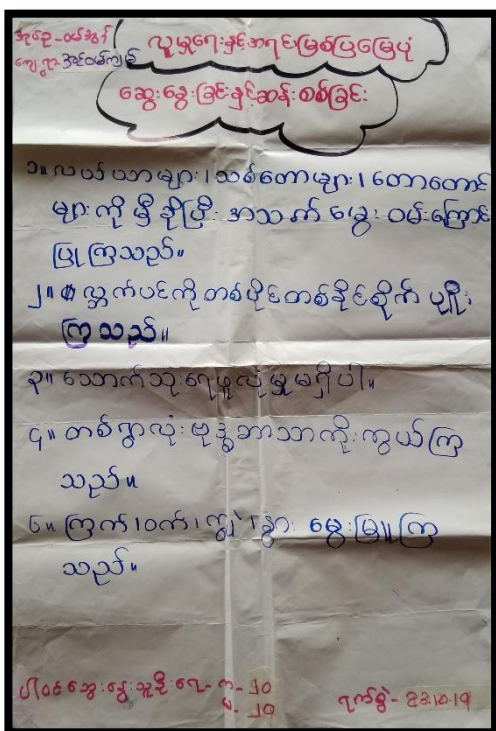 အုပ်စု-ဝမ်အွန်
ကျေးရွာ-အင်ဝမ်ကျမ်
လူမှုရေးနှင့်အရင်းမြစ်ပြမြေပုံ
ဆွေးနွေးခြင်းနှင့်ဆန်းစစ်ခြင်း
၁။ လယ်ယာများ၊ သစ်တောများ၊ တောတောင်
များကို မှီခိုပြီး အသက်မွေးဝမ်းကြောင်း
ပြုကြသည်။
၂။ လ္ဘက်ပင်ကို တစ်ပိုင်တစ်နိုင်စိုက်ပျိုး
ကြသည်။
၃။ သောက်သုံးရေဖူလုံမှုမရှိပါ။
၄။ တစ်ရွာလုံး ဗုဒ္ဓဘာသာကိုးကွယ်ကြ
သည်။
၅။ ကြက်၊ ဝက်၊ ကျွဲ၊ နွား မွေးမြူကြ
သည်။
ပါဝင်ဆွေးနွေးသူဦးရေ- က- ၂၀
မ- ၂၀
ရက်စွဲ- 23.10.19